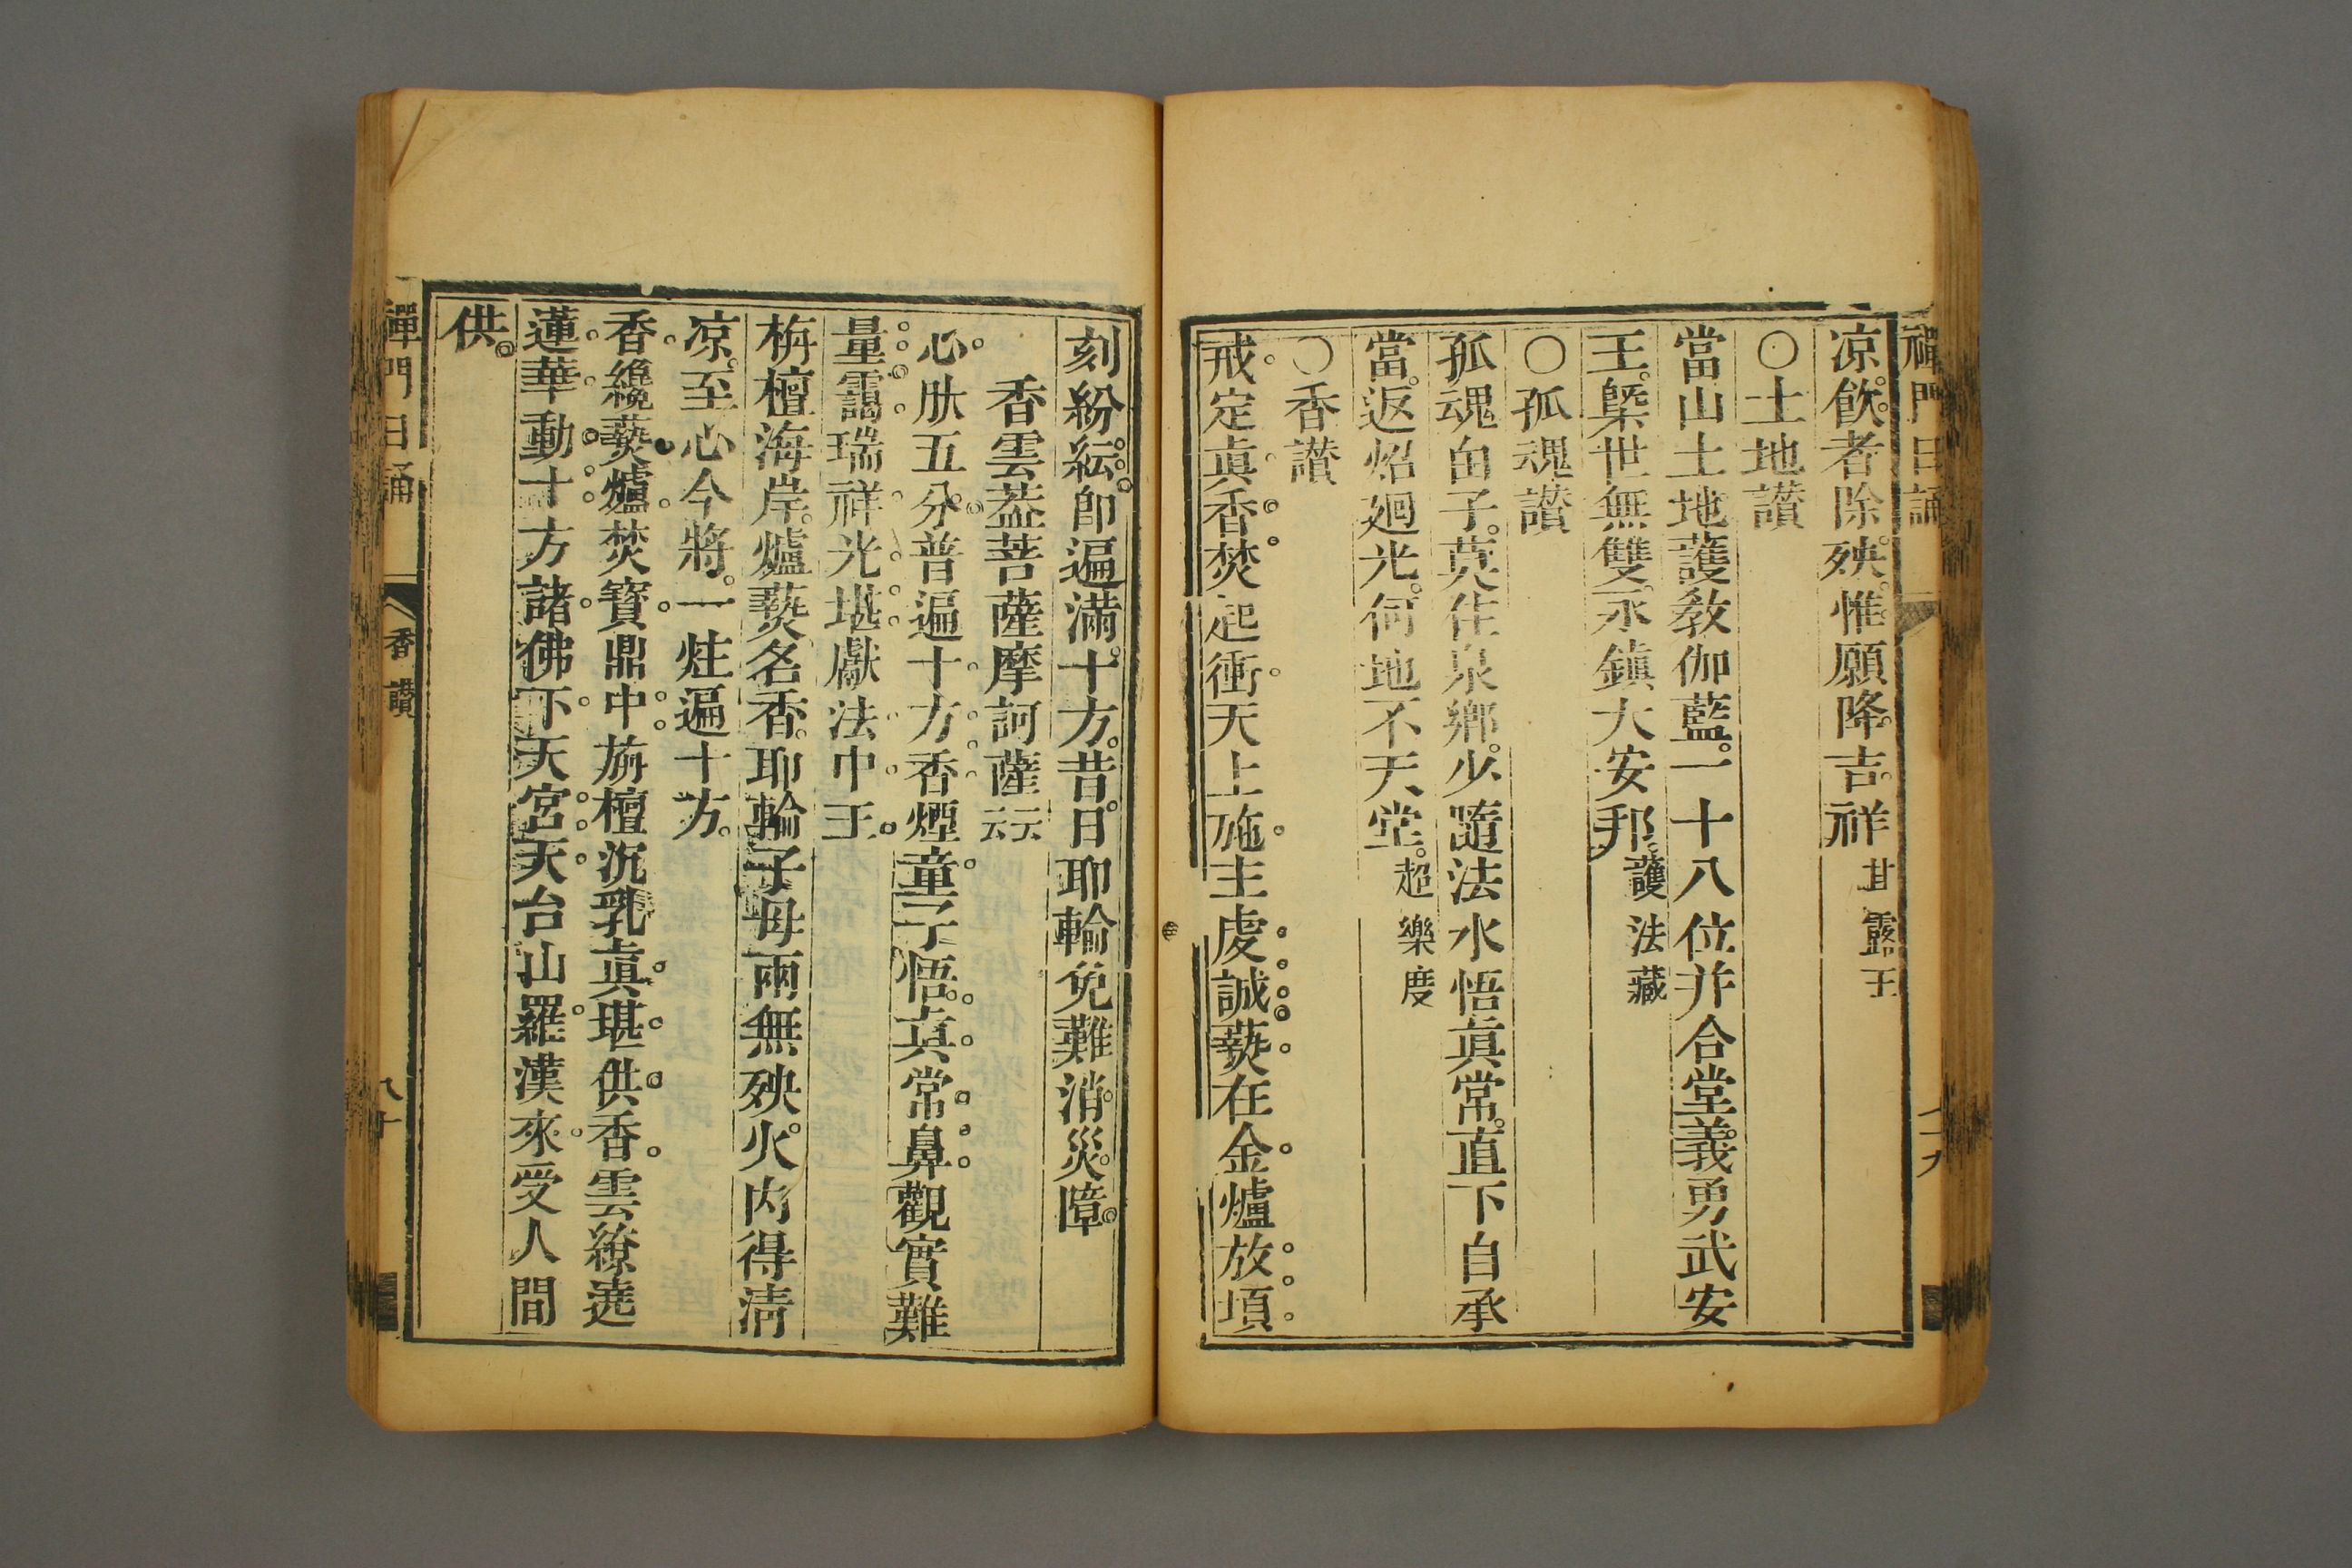 禪門日誦
凉飲者除殃惟願降吉祥甘露王
〇土地讃
當山土地護教伽藍一十八位并合堂義勇武安
王槩世無雙永鎮大安邦護法藏
〇孤魂讃
孤魂由子莫住泉鄉少隨法水悟眞常直下自承
當返炤廻光何地不天堂超樂度
〇香讃
戒定眞香焚起衝天上施主虔誠爇在金爐放頃
刻紛紜即遍滿十方昔日耶輸免難消災障
香雲葢菩薩摩訶薩云云
心肰五分普遍十方香煙童子悟眞常鼻觀實難
量靄瑞祥光堪獻法中王
栴檀海岸爐爇名香耶輸子母兩無殃火內得清
凉至心今將一炷遍十方
香纔爇爐焚寶鼎中旃檀沉乳眞堪供香雲繚遶
蓮華動十方諸佛下天宮天台山羅漢來受人間
供
禪門日誦
香讃
八十